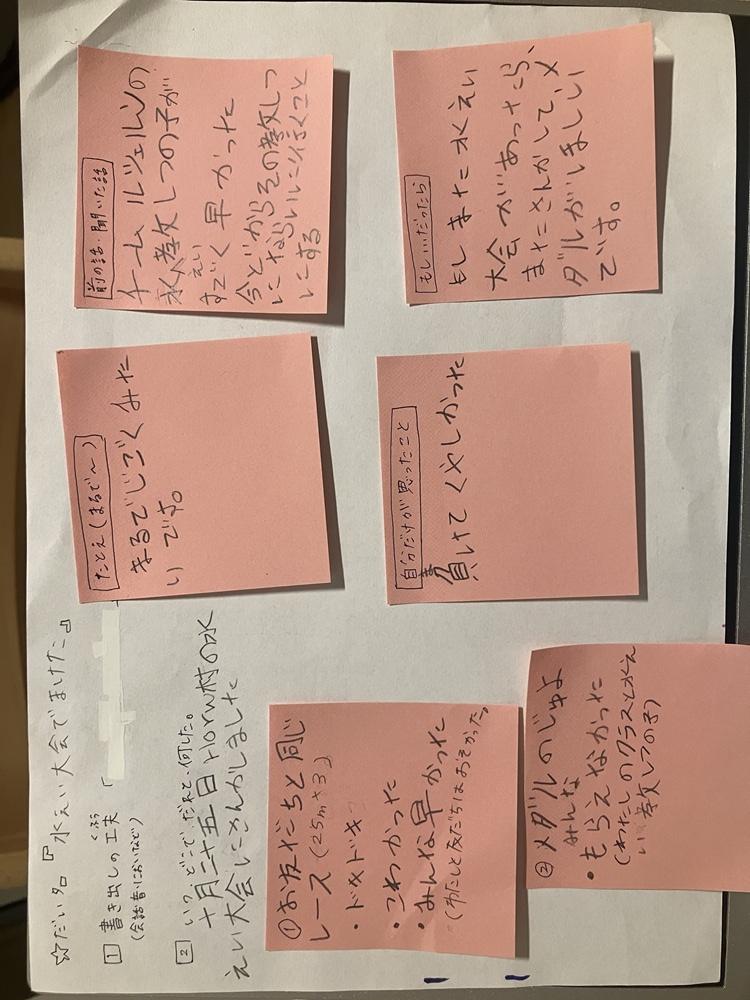 ☆だい名『水えい大会でまけた』
1 書き出しの工夫「
くふう
(会話・音・においなど)
2 いつ、どこで、だれと、何した。
十月二十五日Horw村の水
えい大会にさんかしました
①お友だちと同じ
レース(25m×3)
・ドキドキ
・こわかった
・みんな早かった
(わたしと友だちはおそかった。)
②メダルのじゅよ
みんな
・もらえなかった
(わたしのクラスと水え
い教しつの子)
たとえ(まるで〜)
まるでじごくみた
いです。
自分だけが思ったこと
ま
負けてくやしかった
前の話・聞いた話
チームルツェルンの
水えい教しつの子が
すごく早かった
今どからその教しつ
にならいに行くこと
にする
もし〜だったら
もしまた水えい
大会があったら、
またさんかして、メ
ダルがほしい
です。